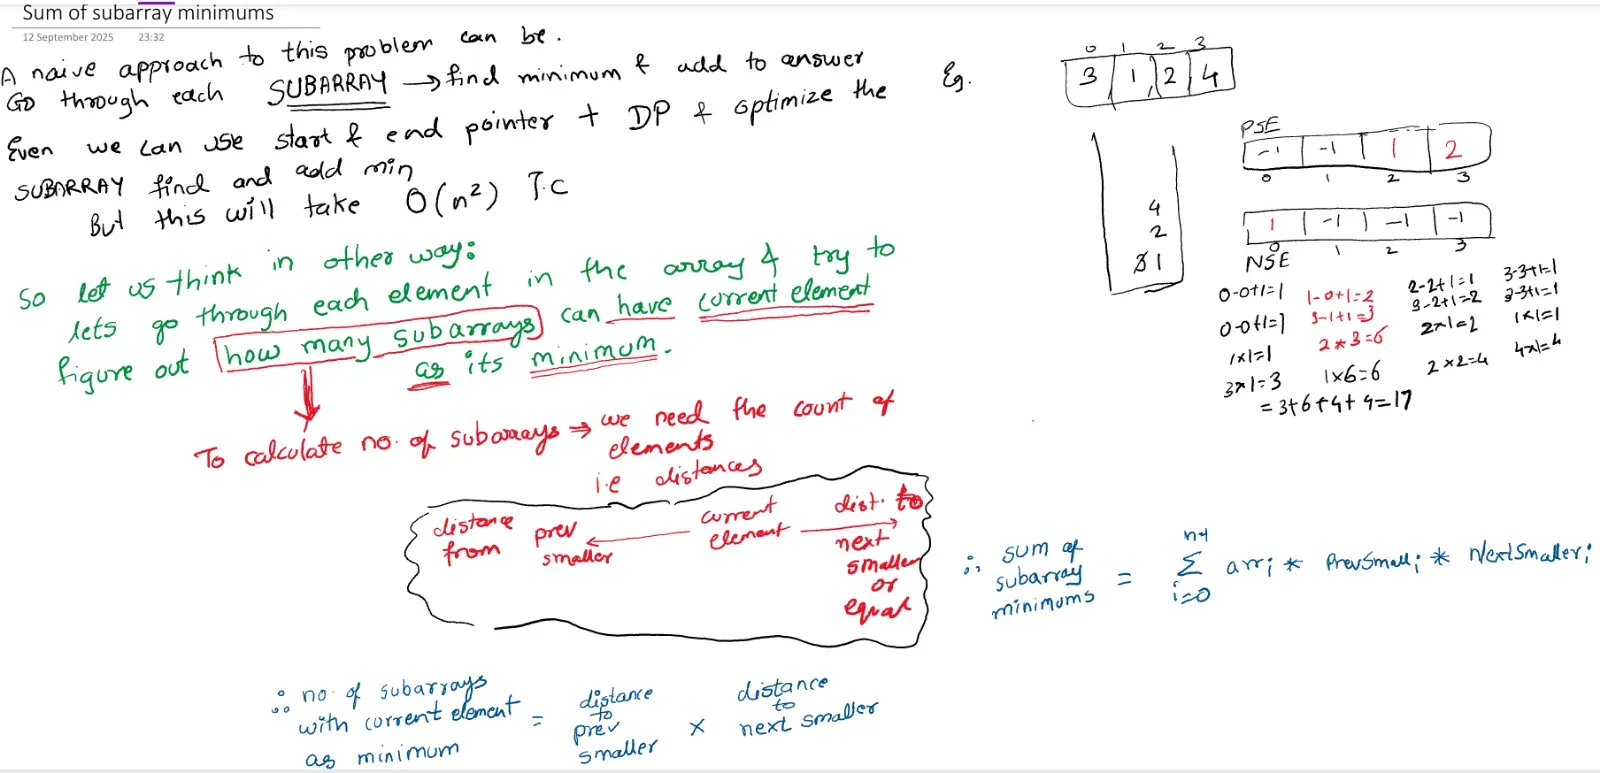 Sum of subarray minimums
12 September 2025 23:32
A naive approach to this problem can be.
GO through each SUBARRAY → find minimum & add to answer
Even we can use start & end pointer + DP & optimize the
SUBARRAY find and add min
But this will take O(n²) T.C
So let us think in other way:
lets go through each element in the array & try to
figure out how many subarrays can have current element
as its minimum.
To calculate no. of subarrays ⇒ we need the count of
elements
i.e distances
distance from prev smaller ← current element → dist. to next smaller or equal
∴ no. of subarrays with current element as minimum = distance to prev smaller × distance to next smaller
∴ sum of subarray minimums = n-1 Σ i=0 arr i * PrevSmall i * NextSmaller i
Eg.
0 1 2 3
3 1 2 4
4
2
3 1
PSE
-1 -1 1 2
0 1 2 3
1 -1 -1 -1
0 1 2 3
NSE
0-0+1=1
0-0+1=1
1×1=1
3×1=3
1-0+1=2
3-1+1=3
2*3=6
1×6=6
2-2+1=1
3-2+1=2
2×1=2
2×2=4
3-3+1=1
3-3+1=1
1×1=1
4×1=4
=3+6+4+4=17